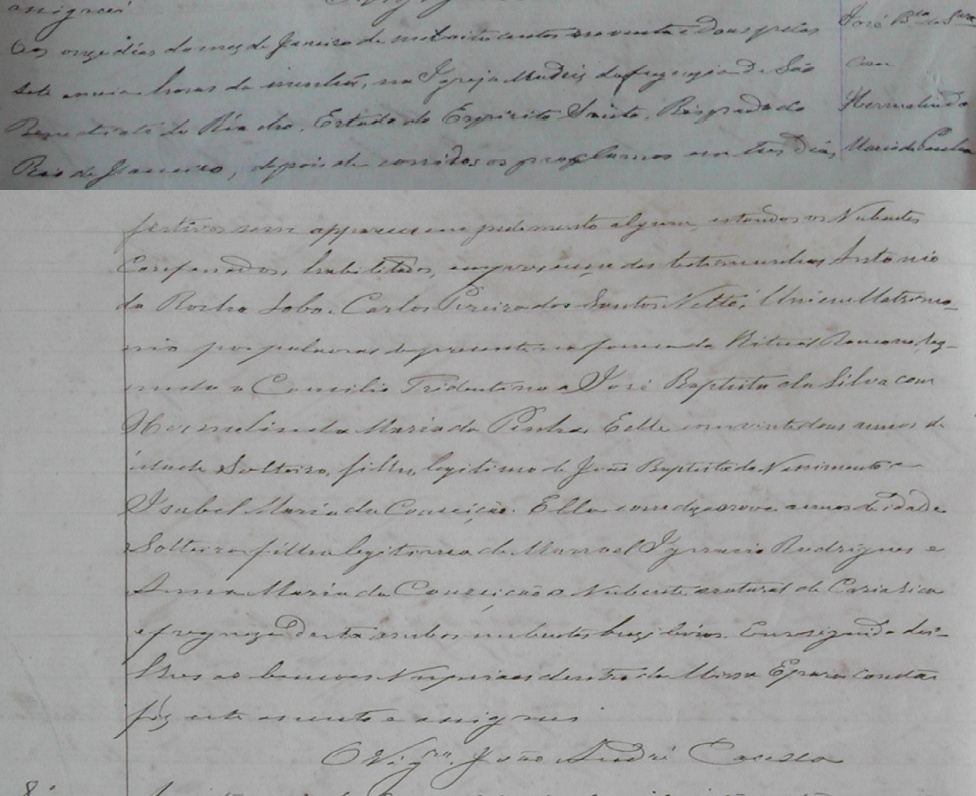 assignei.
Aos onze dias do mez de Janeiro de mil oitocentos noventa e dous pelas
sete e meia horas da manhã, na Igreja Matriz da freguezia de São
Benedicto do Riacho, Estado do Espirito Santo, Bispado do
Rio de Janeiro, depois de corridos os proclamos em tres dias
José Bta da Sª
com
Hermelinda
Maria da Penha
festivos sem apparecer impedimento algum, estando os Nubentes
Confessados, habilitados, em presença das testemunhas Antonio
da Rocha Lobo, Carlos Pereira dos Santos Netto, Uni em Matrimo-
nio por palavras de presente na forma do Ritual Romano, seg-
undo o Concilio Tridentino a José Baptista da Silva com
Hermelinda Maria da Penha, Elle com vinte dous annos de
idade Solteiro, filho legitimo de João Baptista do Nascimento e
Isabel Maria da Conceição. Ella com dezanove annos de idade
Solteira filha legitima de Manoel Ignacio Rodrigues e
Anna Maria da Conceição o Nubente natural de Cariacica
e freguezia desta ambos nubentes brazileiros. Em seguida dei-
lhes as bençãos Nupciaes dentro da Missa E para constar
fiz este assento e assignei.
O Vigrº. João André Casella